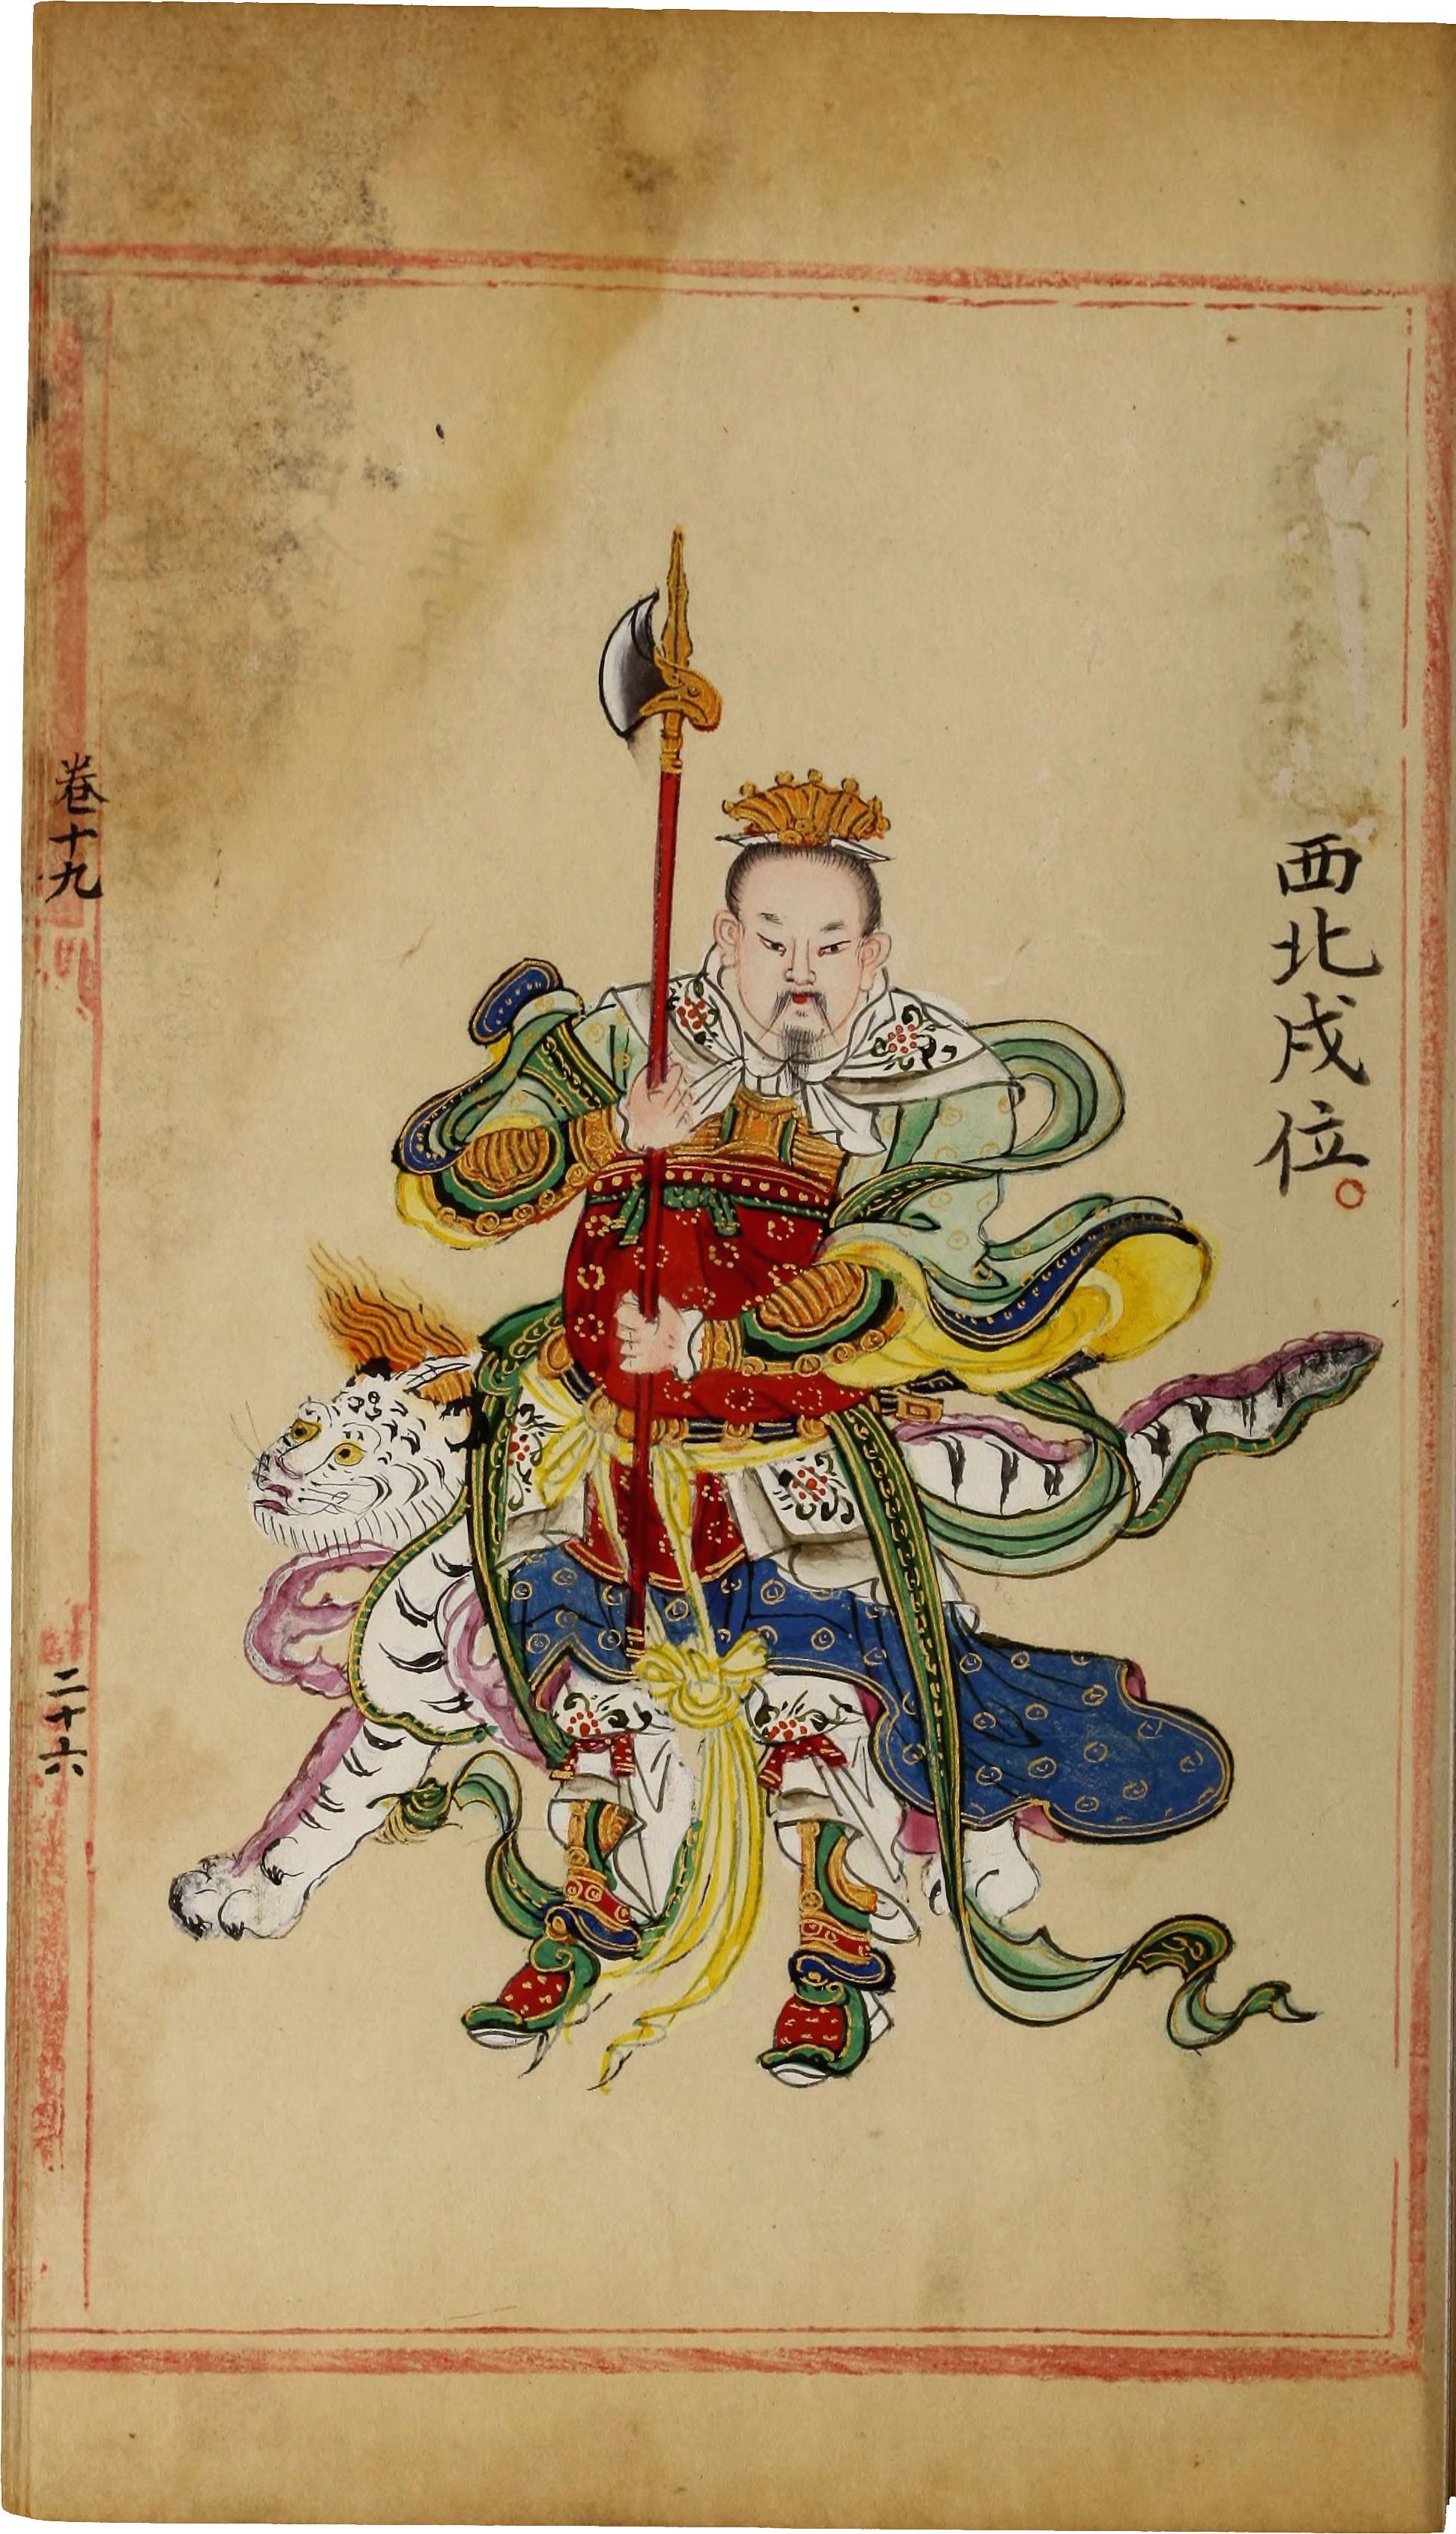 西北戌位。
卷十九
二十六